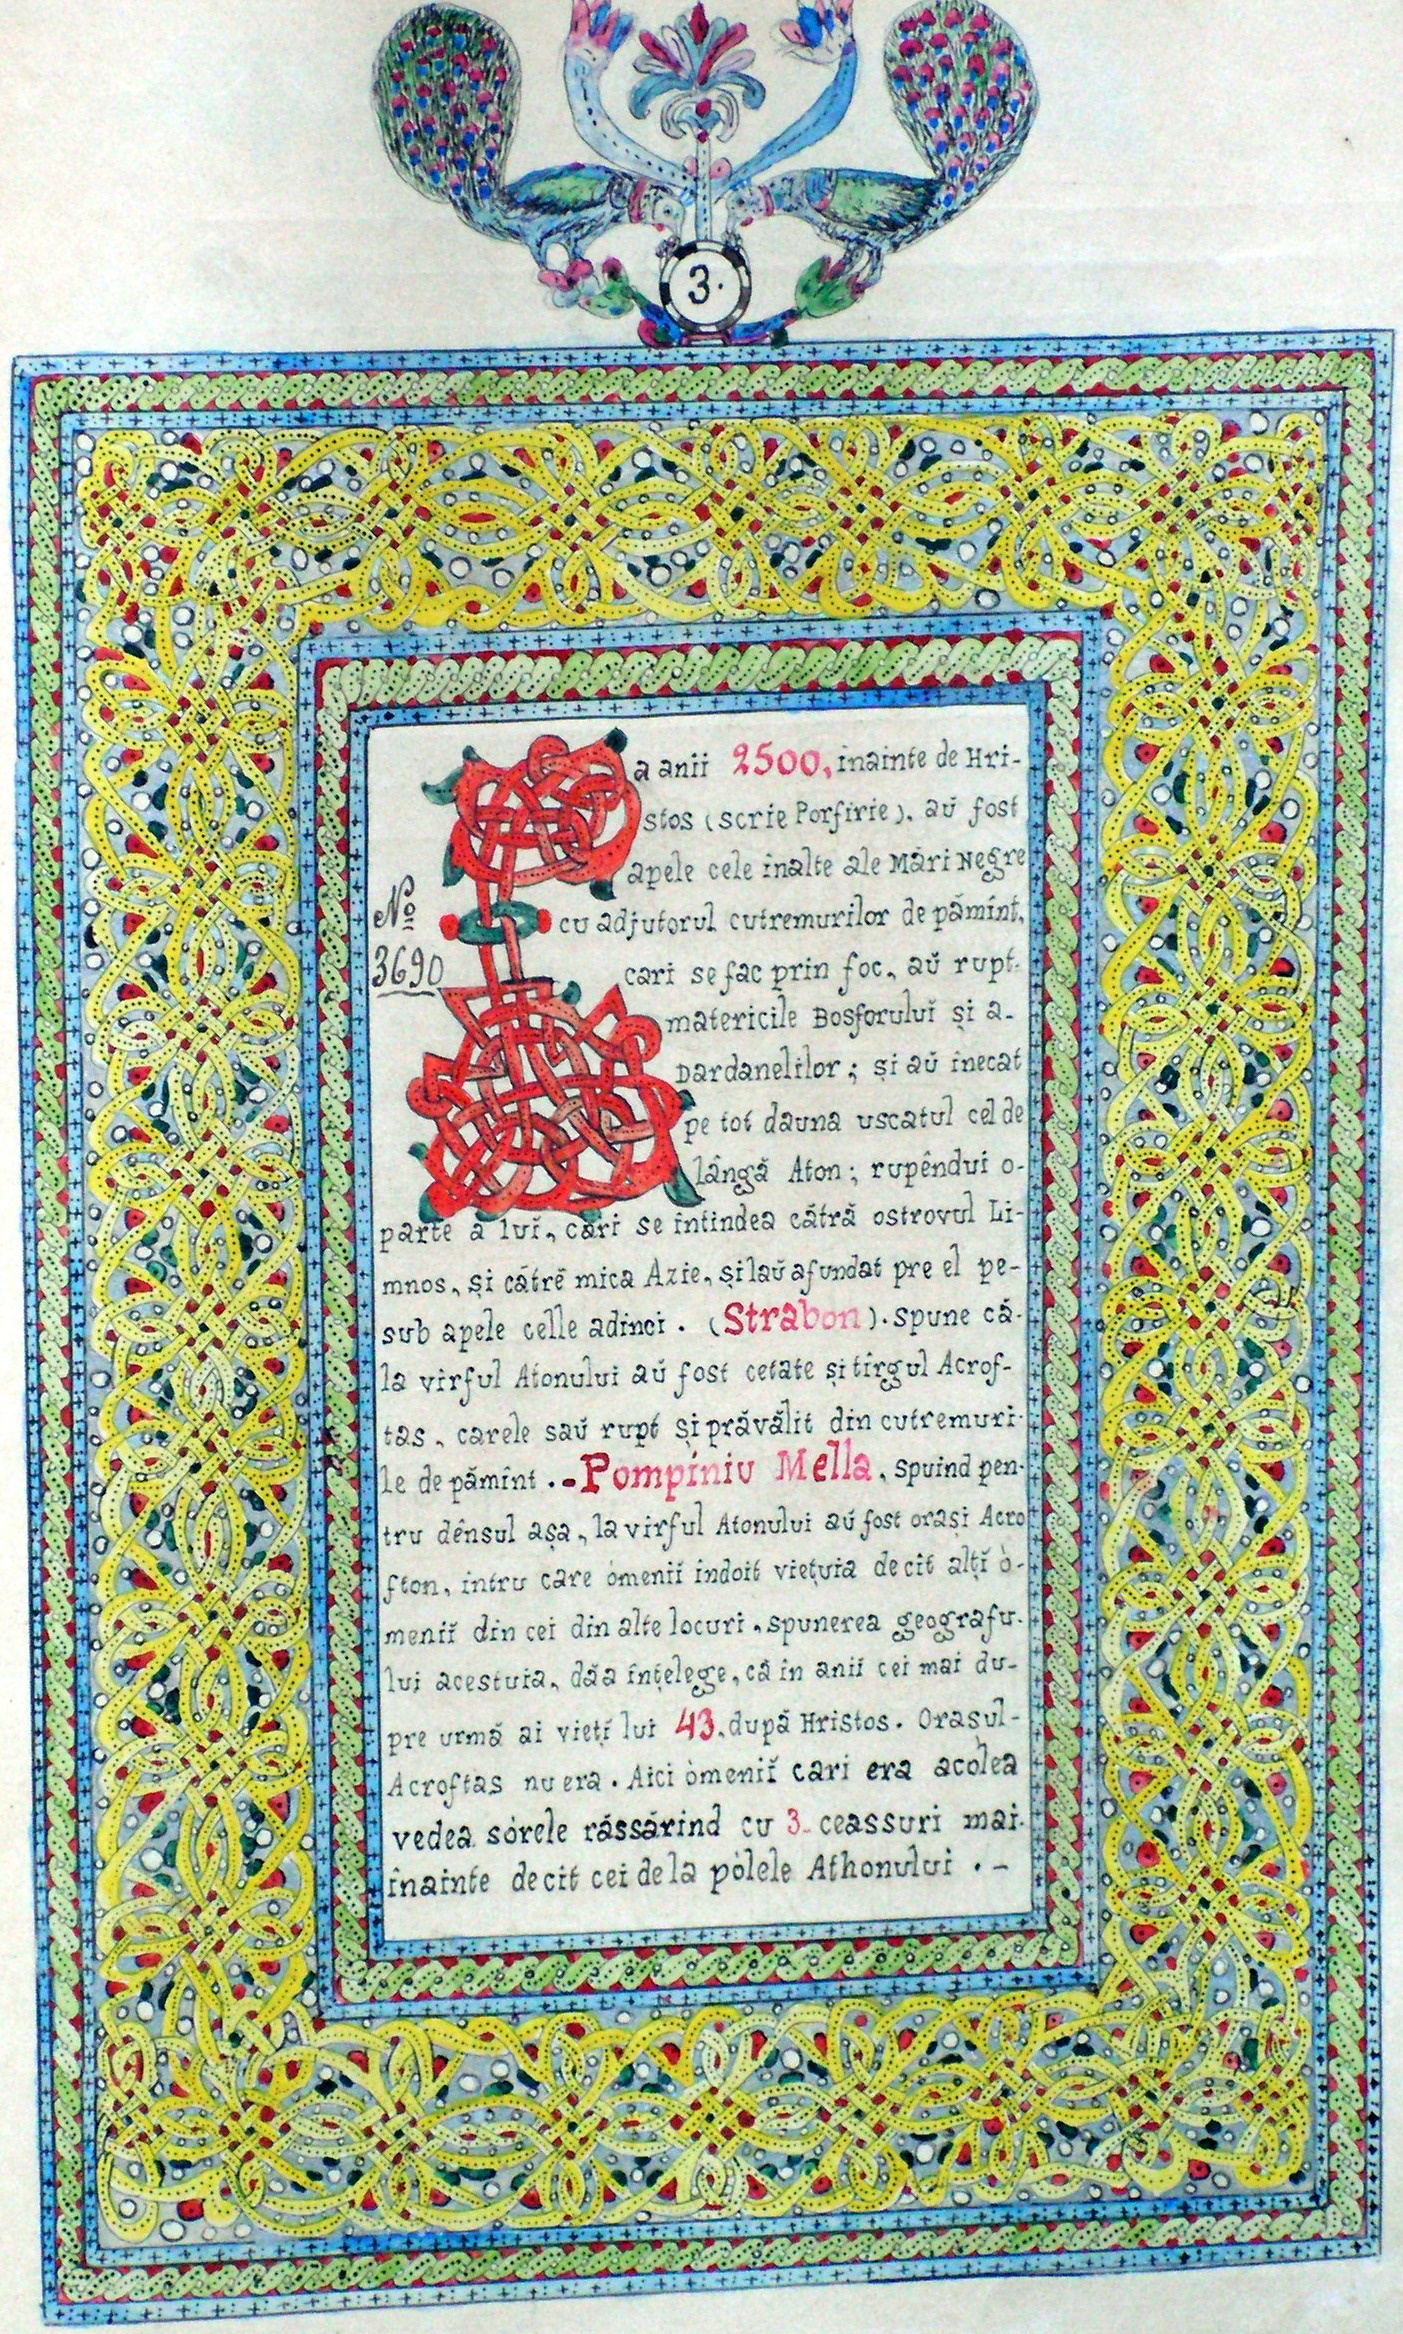 3.
La anii 2500, inainte de Hri-
stos (scrie Porfirie). aŭ fost
apele cele înalte ale Mări Negre
cu adjutorul cutremurilor de pămînt,
cari se fac prin foc, aŭ rupt
matericile Bosforului și a-
Dardanelilor; și aŭ inecat
pe tot dauna uscatul cel de
lângă Aton; rupêndui o-
parte a luĭ, cari se întindea cătră ostrovul Li-
mnos, și cătrĕ mica Azie, și laŭ afundat pre el pe-
sub apele celle adinci. (Strabon). spune că-
la virful Atonului aŭ fost cetate și tîrgul Acrof-
tas, carele saŭ rupt și prăvălit din cutremuri-
le de pămînt. - Pompiniu Mella, spuind pen-
tru dênsul așa, la virful Atonului aŭ fost orași Acro
fton, intru care òmenii indoit viețuia decit alțĭ ò-
meniĭ din cei din alte locuri, spunerea geografu-
lui acestuia, dăa înțelege, că in anii cei mai du-
pre urmă ai viețĭ lui 43. după Hristos. Orașul-
Acroftas nu era. Aici òmeniĭ cari era acolea
vedea sòrele răssărind cu 3. ceassuri mai-
înainte decit cei de la pòlele Athonului . -
No
3690